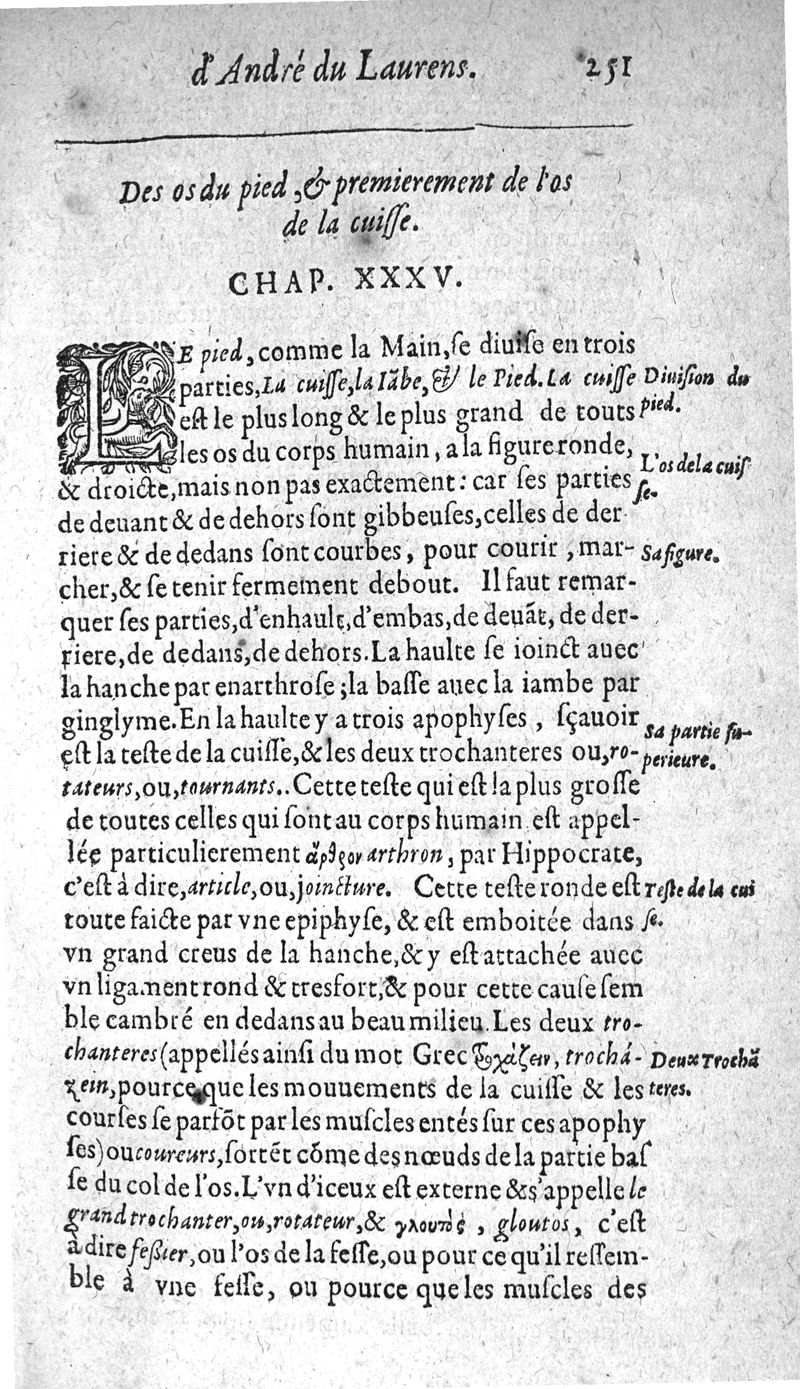 d'André du Laurens. 251
Des os du pied, & premierement de l'os
de la cuiſſe.
CHAP. XXXV.
LE pied, comme la Main, ſe diuiſe en trois
parties, La cuiſſe, la Iãbe, & le Pied. La cuiſſe
eſt le plus long & le plus grand de touts
les os du corps humain, a la figure ronde,
& droicte, mais non pas exactement: car ſes parties
de deuant & de dehors ſont gibbeuſes, celles de der
riere & de dedans ſont courbes, pour courir, mar-
cher, & ſe tenir fermement debout. Il faut remar-
quer ſes parties, d'enhault, d'embas, de deuãt, de der-
riere, de dedans, de dehors. La haulte ſe ioinct auec
la hanche par enarthroſe; la baſſe auec la iambe par
ginglyme. En la haulte y a trois apophyſes, ſçauoir
eſt la teſte de la cuiſſe, & les deux trochanteres ou, ro-
tateurs, ou, tournants.. Cette teſte qui eſt la plus groſſe
de toutes celles qui ſont au corps humain eſt appel-
lée particulierement ἄρθρον arthron, par Hippocrate,
c'eſt à dire, article, ou, joincture. Cette teſte ronde eſt
toute faicte par vne epiphyſe, & eſt emboitée dans
vn grand creus de la hanche, & y eſt attachée auec
vn ligament rond & tresfort, & pour cette cauſe ſem
ble cambré en dedans au beau milieu. Les deux tro-
chanteres (appellés ainſi du mot Grec τροχάζειν, trochá-
zein, pource que les mouuements de la cuiſſe & les
courſes ſe parfõt par les muſcles entés ſur ces apophy
ſes) ou coureurs, ſortẽt cõme des nœuds de la partie baſ
ſe du col de l'os. L'vn d'iceux eſt externe & s'appelle le
grand trochanter, ou, rotateur, & γλουτὸς, gloutos, c'eſt
à dire feßier, ou l'os de la feſſe, ou pour ce qu'il reſſem-
ble à vne feſſe, ou pource que les muſcles des
Diuiſion du
pied.
L'os de la cuiſ
ſe.
Sa figure.
Sa partie ſu-
perieure.
Teſte de la cui
ſſe.
Deux Trochã
teres.